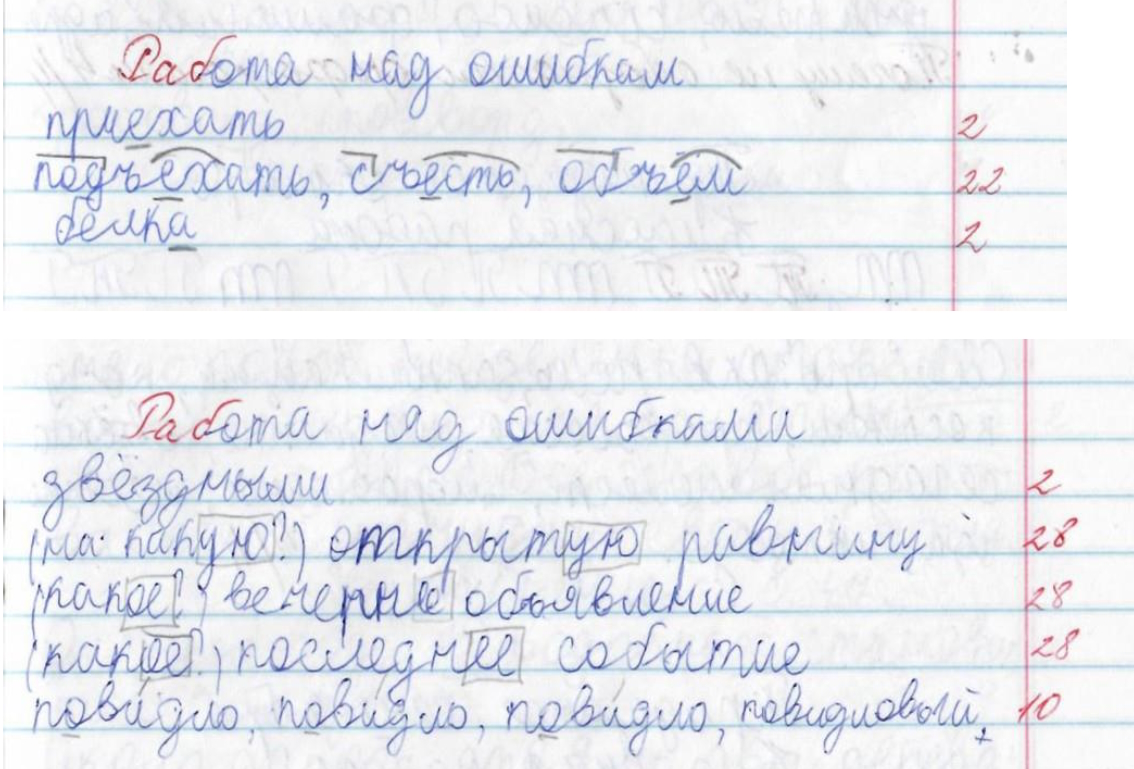 Работа над ошибкам
приехать 2
подъехать, съесть, объём 22
белка 2
Работа над ошибками
звёздными 2
(на какую?) открытую равнину 28
(какое?) вечернее объявление 28
(какое?) последнее событие 28
повидло, повидло, повидло, повидловый, 10